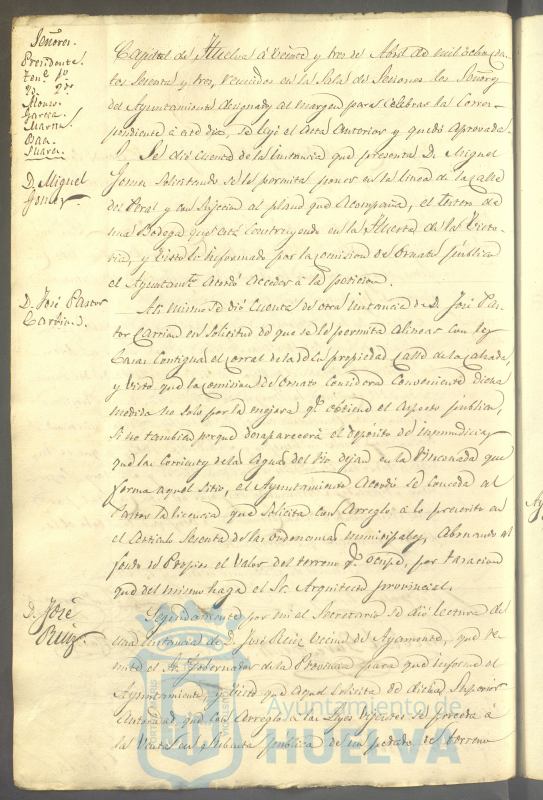 Señores.
Presidente.
Tent.e 1.º
Yd. 2.º
Alonso
Garcia
Martin
Suarez
Capital de Huelva á veinte y tres de Abril de mil ochocien
tos sesenta y tres, reunidos en la Sala de Sesiones los Señores
del Ayuntamiento designados al margen para celebrar la Corres
pondiente á este dia, se leyó el acta anterior y quedó aprovada.
D. Miguel
Gomez
Se dió cuenta de la instancia que presenta D. Miguel
Gomez solicitando se le permita poner en la linea de la calle
del Peral y con sujecion al plano que acompaña, el testero de
una Bodega que está construyendo en la Huerta de la Victo
ria, y visto lo informado por la comision de Ornato público
el Ayuntam.to acordó acceder á la peticion.
D. José Pastor
Carrion.
Asi mismo se dió cuenta de otra instancia de D. José Pas
tor Carrion en solicitud de que se le permita alinear con las
casas contiguas el corral de la de su propiedad calle de la Calzada,
y visto que la comision de Ornato considera conveniente dicha
medida no solo por la mejora q.e obtiene el aspecto público,
si no tambien porque desaparecerá el depósito de inmundicias
que las corrientes de las aguas del rio dejan en la rinconada que
forma aquel sitio, el Ayuntamiento acordó se conceda al
Pastor la licencia que solicita con arreglo á lo prescrito en
el articulo sesenta de las ordenanzas municipales, abonando al
fondo de Propios el valor del terreno q.e ocupe, por tasacion
que del mismo haga el Sr. Arquitecto provincial.
D. José
Ruiz
Seguidamente por mi el Secretario se dió lectura de
una instancia de D. José Ruiz vecino de Ayamonte, que re
mite el Sr. Gobernador de la Provincia para que informe el
Ayuntamiento, y visto que aquel solicita de dicha Superior
autoridad, que con arreglo a las Leyes vijentes se proceda á
la venta en pública subasta de un pedazo de terreno
Ayuntamiento de
HUELVA